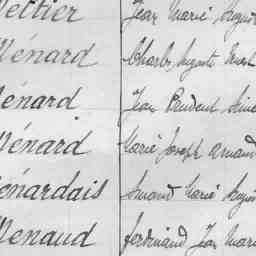 eltier Jean Marie
Ménard Charles Auguste Ernest
énard Jean Prudent
Ménard Marie Joseph Armand
énardais Armand Marie
Menaud Ferdinand Jean Marie